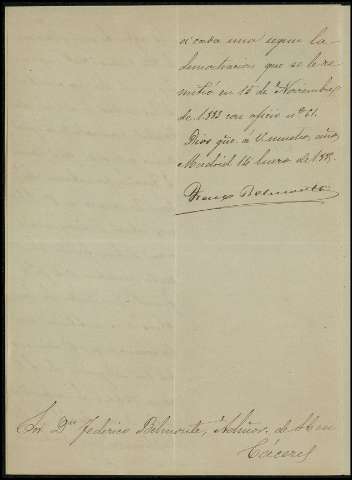 á cada uno segun la
demostracion que se le re
mitió en 15 de Noviembre
de 1883 con oficio nº 61.
Dios gue. á V. muchos años
Madrid 14 Enero de 188
Belmonte
Sor. Dn. Federico Belmonte, Admor. de
Cáceres